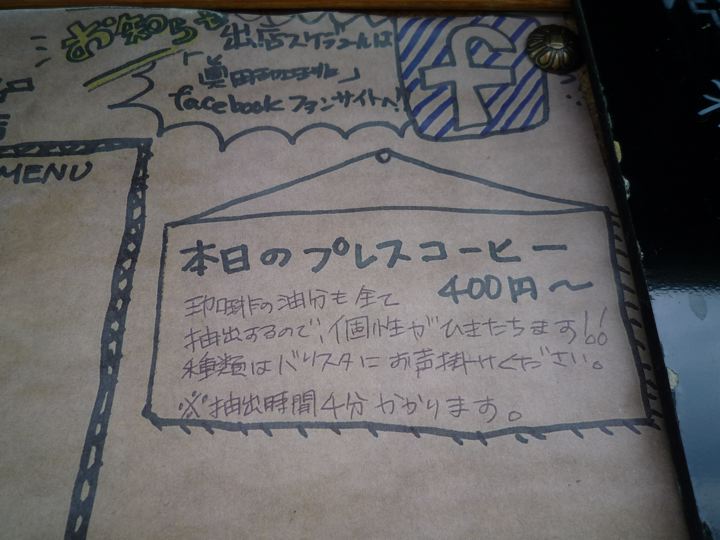 お知らせ
出店スケジュールは
「眞田珈琲」
facebookファンサイトへ!
f
MENU
本日のプレスコーヒー
400円〜
珈琲の油分も全て
抽出するので、個性がひきたちます!!
種類はバリスタにお声掛けください。
※抽出時間4分かかります。